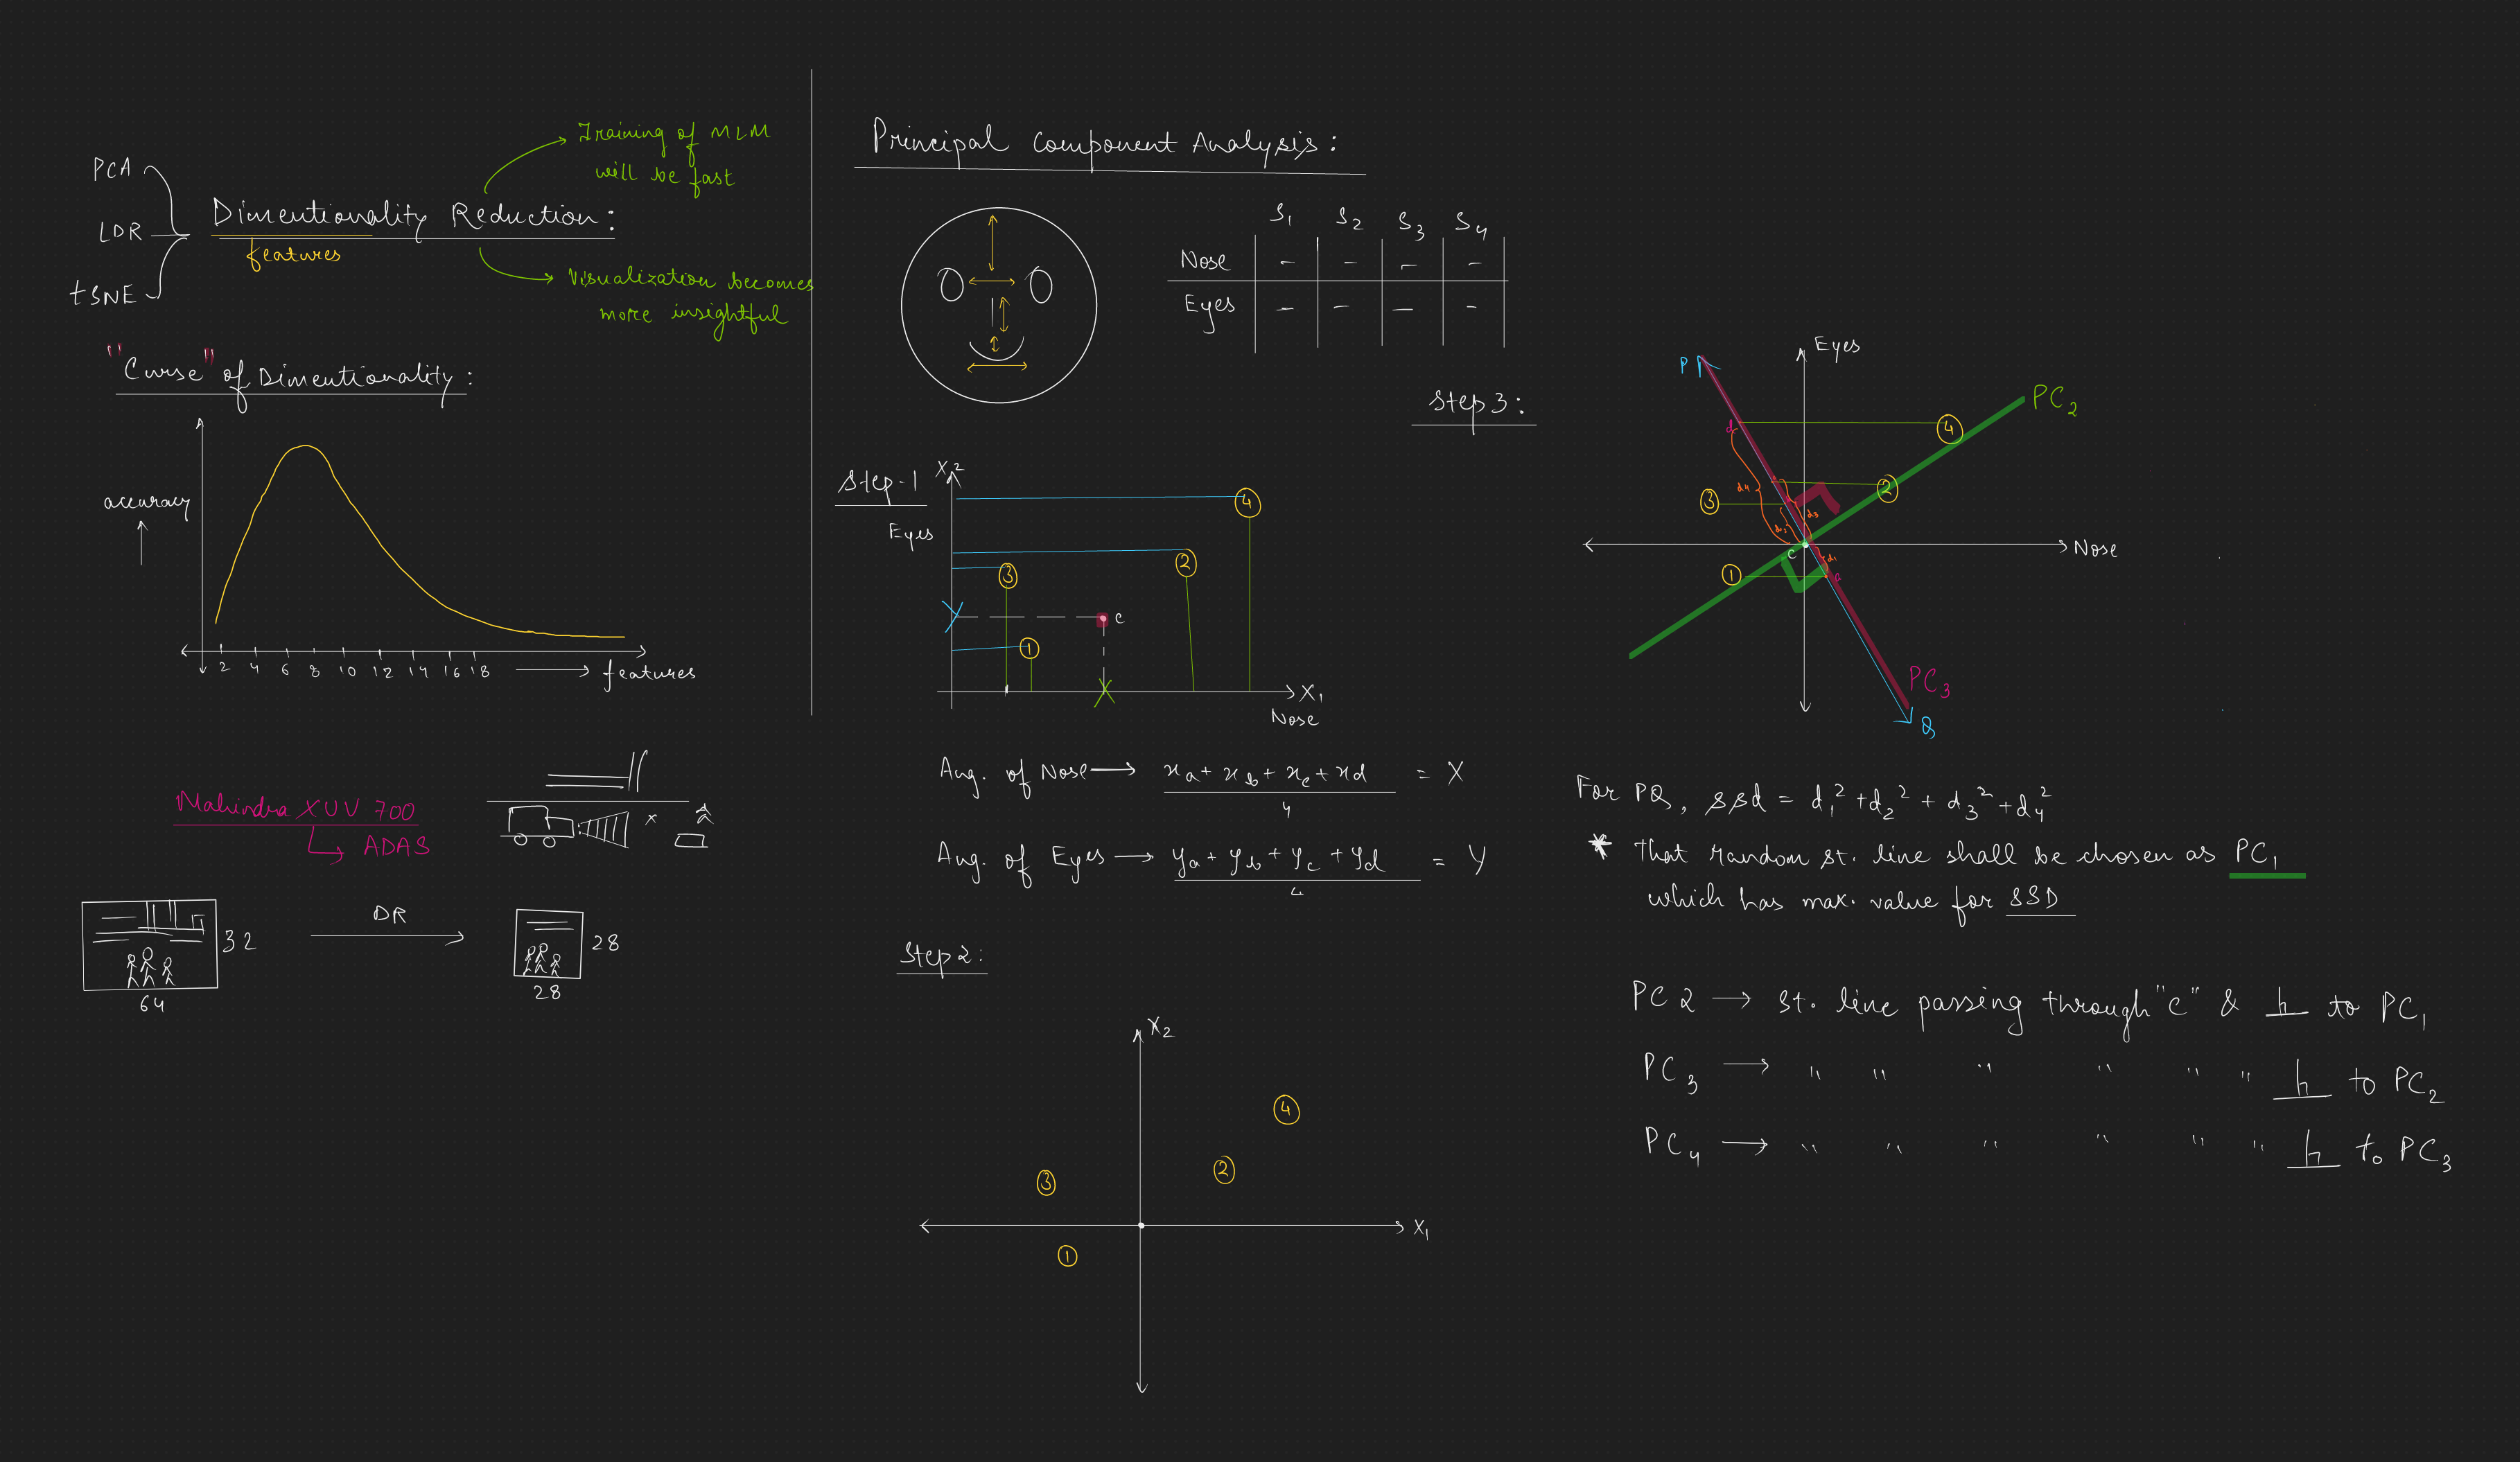 PCA
LDR
tSNE
Dimentionality Reduction:
features
Training of MLM
will be fast
Visualization becomes
more insightful
"Curse" of Dimentionality:
accuracy
2 4 6 8 10 12 14 16 18
features
Mahindra XUV 700
ADAS
x
32
64
DR
28
28
Principal Component Analysis:
S1 S2 S3 S4
Nose - - - -
Eyes - - - -
Step-1
X2
Eyes
4
2
3
Y
C
1
X
X1
Nose
Avg. of Nose → xa + xb + xc + xd / 4 = X
Avg. of Eyes → ya + yb + yc + yd / 4 = Y
Step 2:
X2
4
2
3
X1
1
Step 3:
Eyes
P
PC2
d
4
d4
2
3
d3
d2
C
Nose
d1
1
a
PC3
Q
For PQ, ssd = d1² + d2² + d3² + d4²
* That random st. line shall be chosen as PC1
which has max. value for SSD
PC2 → st. line passing through "c" & h to PC1
PC3 → " " " " " " h to PC2
PC4 → " " " " " " h to PC3